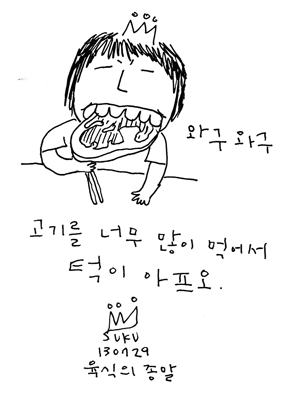 와구 와구
고기를 너무 많이 먹어서
턱이 아프오.
SUKU
130729
육식의 종말